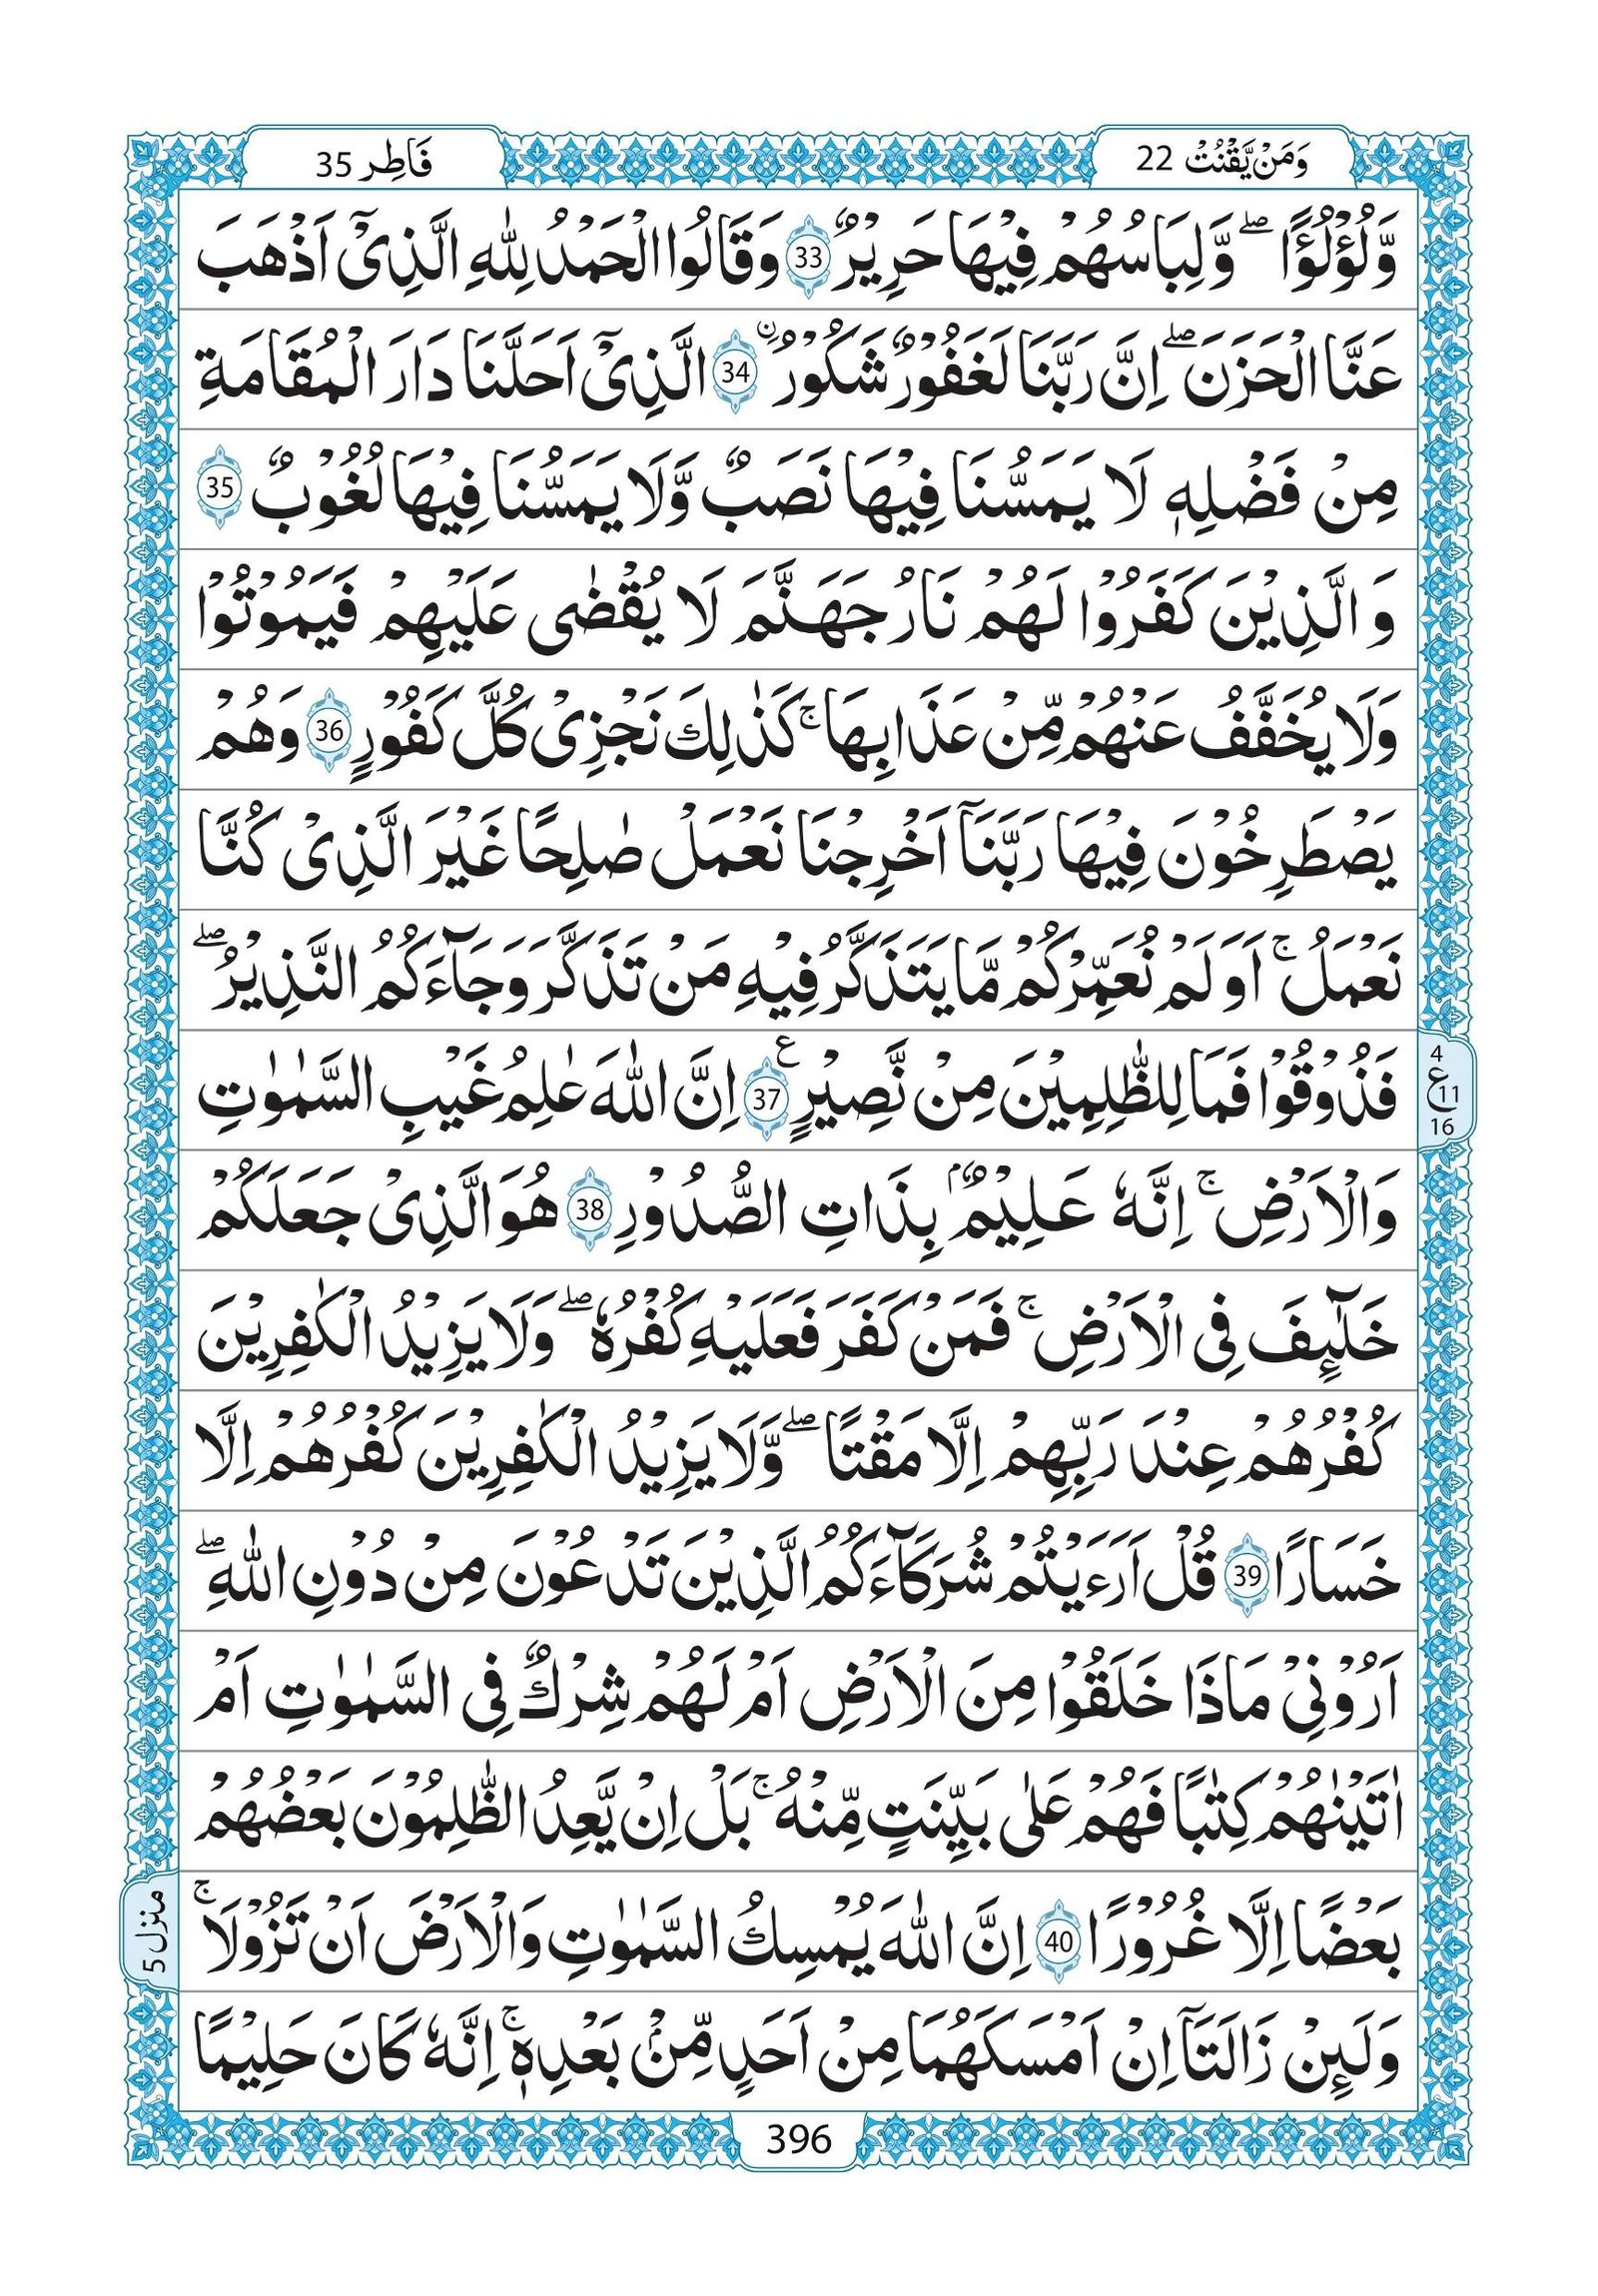 وَمَنْ يَّقْنُتْ 22
فَاطِر 35
وَّلُؤْلُؤًا ۖ وَّلِبَاسُهُمْ فِيْهَا حَرِيْرٌ 33 وَقَالُوا الْحَمْدُ لِلّٰهِ الَّذِيْۤ اَذْهَبَ
عَنَّا الْحَزَنَ ۖ اِنَّ رَبَّنَا لَغَفُوْرٌ شَكُوْرٌ ۙ 34 الَّذِيْۤ اَحَلَّنَا دَارَ الْمُقَامَةِ
مِنْ فَضْلِهٖ لَا يَمَسُّنَا فِيْهَا نَصَبٌ وَّلَا يَمَسُّنَا فِيْهَا لُغُوْبٌ 35
وَ الَّذِيْنَ كَفَرُوْا لَهُمْ نَارُ جَهَنَّمَ لَا يُقْضٰى عَلَيْهِمْ فَيَمُوْتُوْا
وَلَا يُخَفَّفُ عَنْهُمْ مِّنْ عَذَابِهَا ۚ كَذٰلِكَ نَجْزِيْ كُلَّ كَفُوْرٍ 36 وَهُمْ
يَصْطَرِخُوْنَ فِيْهَا رَبَّنَاۤ اَخْرِجْنَا نَعْمَلْ صٰلِحًا غَيْرَ الَّذِيْ كُنَّا
نَعْمَلُ ۚ اَوَ لَمْ نُعَمِّرْكُمْ مَّا يَتَذَكَّرُ فِيْهِ مَنْ تَذَكَّرَ وَجَآءَكُمُ النَّذِيْرُ ۖ
فَذُوْقُوْا فَمَا لِلظّٰلِمِيْنَ مِنْ نَّصِيْرٍ ع 37 اِنَّ اللّٰهَ عٰلِمُ غَيْبِ السَّمٰوٰتِ
4
ع 11
16
وَالْاَرْضِ ۚ اِنَّهٗ عَلِيْمٌۢ بِذَاتِ الصُّدُوْرِ 38 هُوَ الَّذِيْ جَعَلَكُمْ
خَلٰٓئِفَ فِي الْاَرْضِ ۚ فَمَنْ كَفَرَ فَعَلَيْهِ كُفْرُهٗ ۖ وَلَا يَزِيْدُ الْكٰفِرِيْنَ
كُفْرُهُمْ عِنْدَ رَبِّهِمْ اِلَّا مَقْتًا ۖ وَّلَا يَزِيْدُ الْكٰفِرِيْنَ كُفْرُهُمْ اِلَّا
خَسَارًا 39 قُلْ اَرَءَيْتُمْ شُرَكَآءَكُمُ الَّذِيْنَ تَدْعُوْنَ مِنْ دُوْنِ اللّٰهِ ۖ
اَرُوْنِيْ مَاذَا خَلَقُوْا مِنَ الْاَرْضِ اَمْ لَهُمْ شِرْكٌ فِي السَّمٰوٰتِ اَمْ
اٰتَيْنٰهُمْ كِتٰبًا فَهُمْ عَلٰى بَيِّنَتٍ مِّنْهُ ۚ بَلْ اِنْ يَّعِدُ الظّٰلِمُوْنَ بَعْضُهُمْ
بَعْضًا اِلَّا غُرُوْرًا 40 اِنَّ اللّٰهَ يُمْسِكُ السَّمٰوٰتِ وَالْاَرْضَ اَنْ تَزُوْلَا ۚ
منزل 5
وَلَئِنْ زَالَتَاۤ اِنْ اَمْسَكَهُمَا مِنْ اَحَدٍ مِّنْۢ بَعْدِهٖ ۚ اِنَّهٗ كَانَ حَلِيْمًا
396